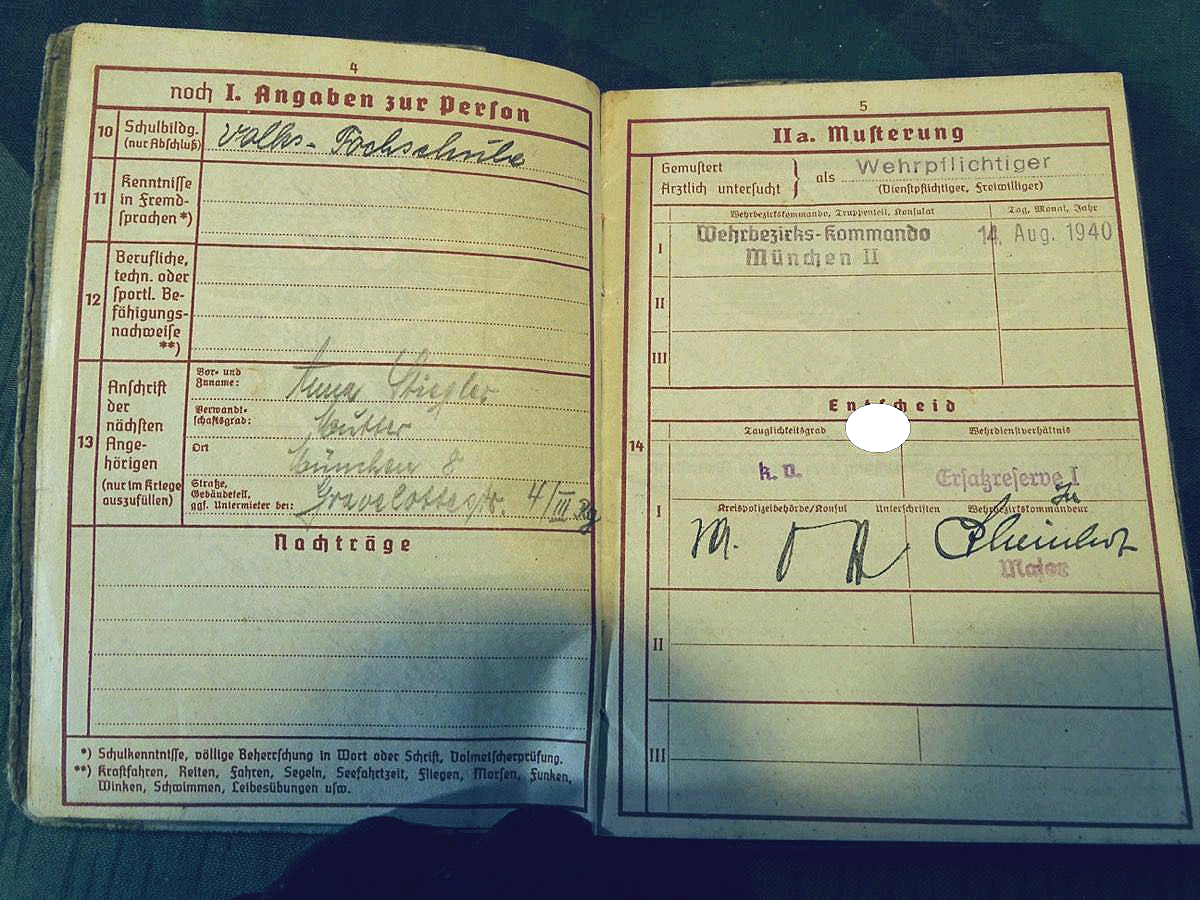 4
noch I. Angaben zur Person
10 Schulbildg. (nur Abschluß)
Volks- Fachschule
11 Kenntnisse in Fremd-
sprachen *)
12 Berufliche,
techn. oder
sportl. Be-
fähigungs-
nachweise
**)
13 Anschrift
der
nächsten
Ange-
hörigen
(nur im Kriege
auszufüllen)
Vor- und
Zuname:
Anna Stiegler
Verwandt-
schaftsgrad:
Mutter
Ort
München 8
Straße,
Gebäudeteil,
ggf. Untermieter bei:
Gravelottestr. 4/III
Nachträge
*) Schulkenntnisse, völlige Beherrschung in Wort oder Schrift, Dolmetscherprüfung.
**) Kraftfahren, Reiten, Fahren, Segeln, Seefahrtzeit, Fliegen, Morsen, Funken,
Winken, Schwimmen, Leibesübungen usw.
5
IIa. Musterung
Gemustert
Ärztlich untersucht } als Wehrpflichtiger
(Dienstpflichtiger, Freiwilliger)
Wehrbezirkskommando, Truppenteil, Konsulat
Tag, Monat, Jahr
I Wehrbezirks-Kommando 14. Aug. 1940
München II
II
III
Entscheid
Tauglichkeitsgrad
Wehrdienstverhältnis
14
k. v.
Ersatzreserve I
I Kreispolizeibehörde/Konsul Unterschriften Wehrbezirkskommandeur
M.
Major
II
III